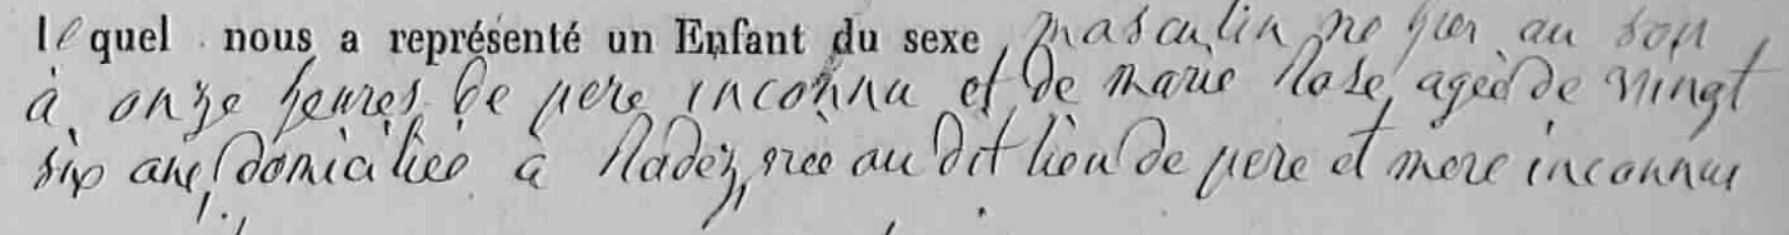 lequel nous a représenté un Enfant du sexe masculin né hier au soir
à onze heures de pere inconnu et de marie Rose, ageè de vingt
six ans, domiciliee à Nadez, nee au dit lieu de pere et mere inconnus